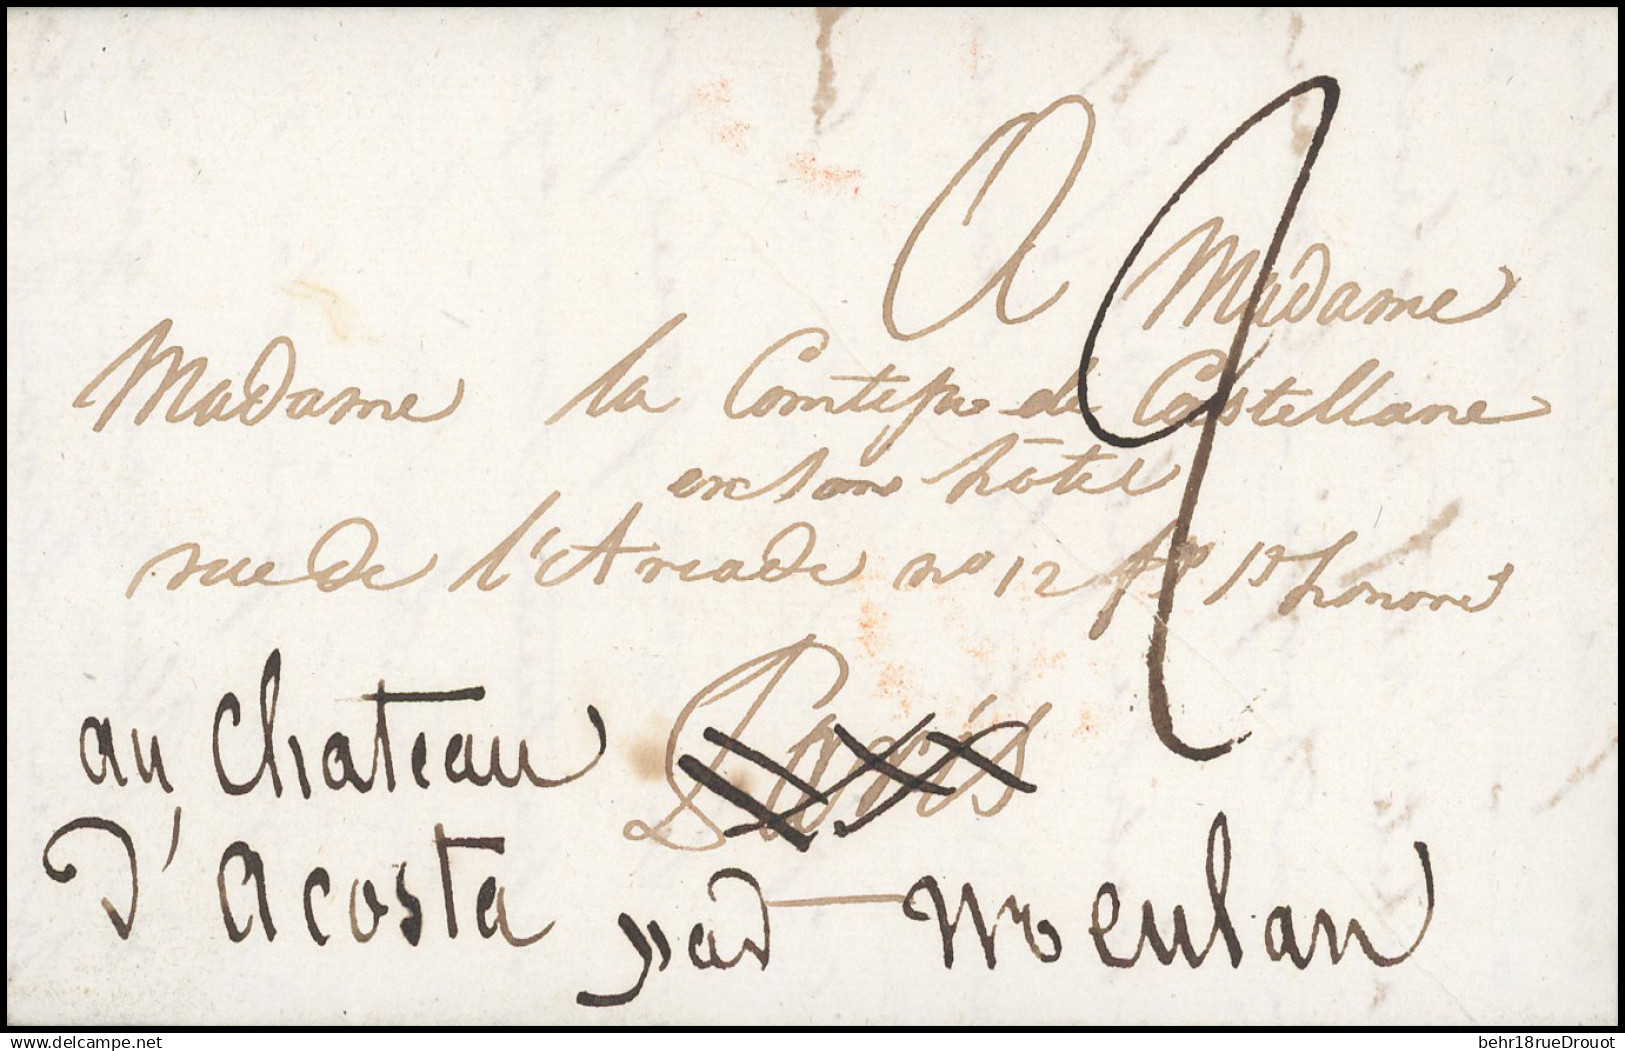 A Madame
Madame la Comtesse de Castellane
en son hôtel
rue de l'Arcade nº 12 fg St honoré
Paris
au Chateau
d'Acosta par Meulan
behr18rueDrouot